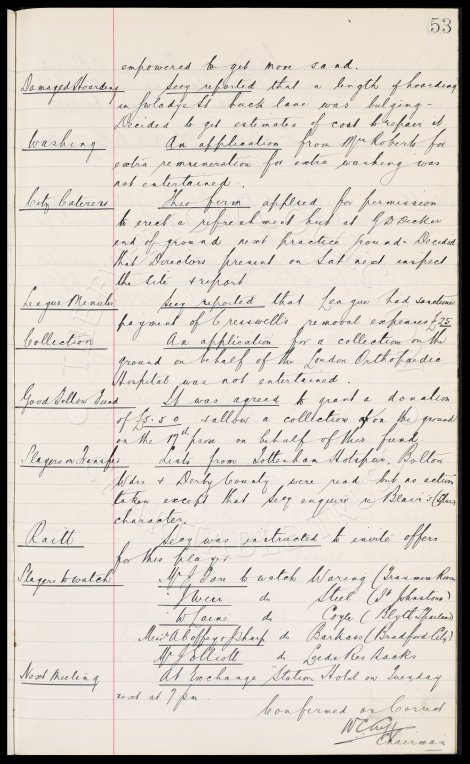 53
empowered to get more sand.
Damaged Hoarding Secy reported that a length of hoarding
in Gwladys St back lane was bulging -
Decided to get estimates of cost to repair it
Washing An application from Mrs Roberts for
extra remuneration for extra washing was
not entertained.
City Caterers This firm applied for permission
to erect a refreshment hut at G D Decker
end of ground next practice ground - Decided
that Directors present on Sat next inspect
the site & report
League Minutes Secy reported that League had sanctioned
payment of Cresswell's removal expenses £25
Collection An application for a collection on the
ground on behalf of the London Orthopaedic
Hospital was not entertained.
Good Fellow Fund It was agreed to grant a donation
of £5.5.0 & allow a collection on the ground
on the 17th prox on behalf of this fund
Players on Transfer Lists from Tottenham Hotspur, Bolton
Wdrs & Derby County were read but no action
taken except that Secy enquire re Blair's (Spurs)
character.
Raitt Secy was instructed to invite offers
for this player.
Players to watch Mr J Sare to watch Waring (Tranmere Rovers)
do Steel (St Johnstone)
W Sainé do Coyle (Blyth Spartans)
Messrs A Coffey & Sharp do Barkass (Bradford City)
Mr J Elliott do Leeds Res backs
Next Meeting At Exchange Station Hotel on Tuesday
next at 7 pm.
Confirmed as Correct
W C Cuff
Chairman